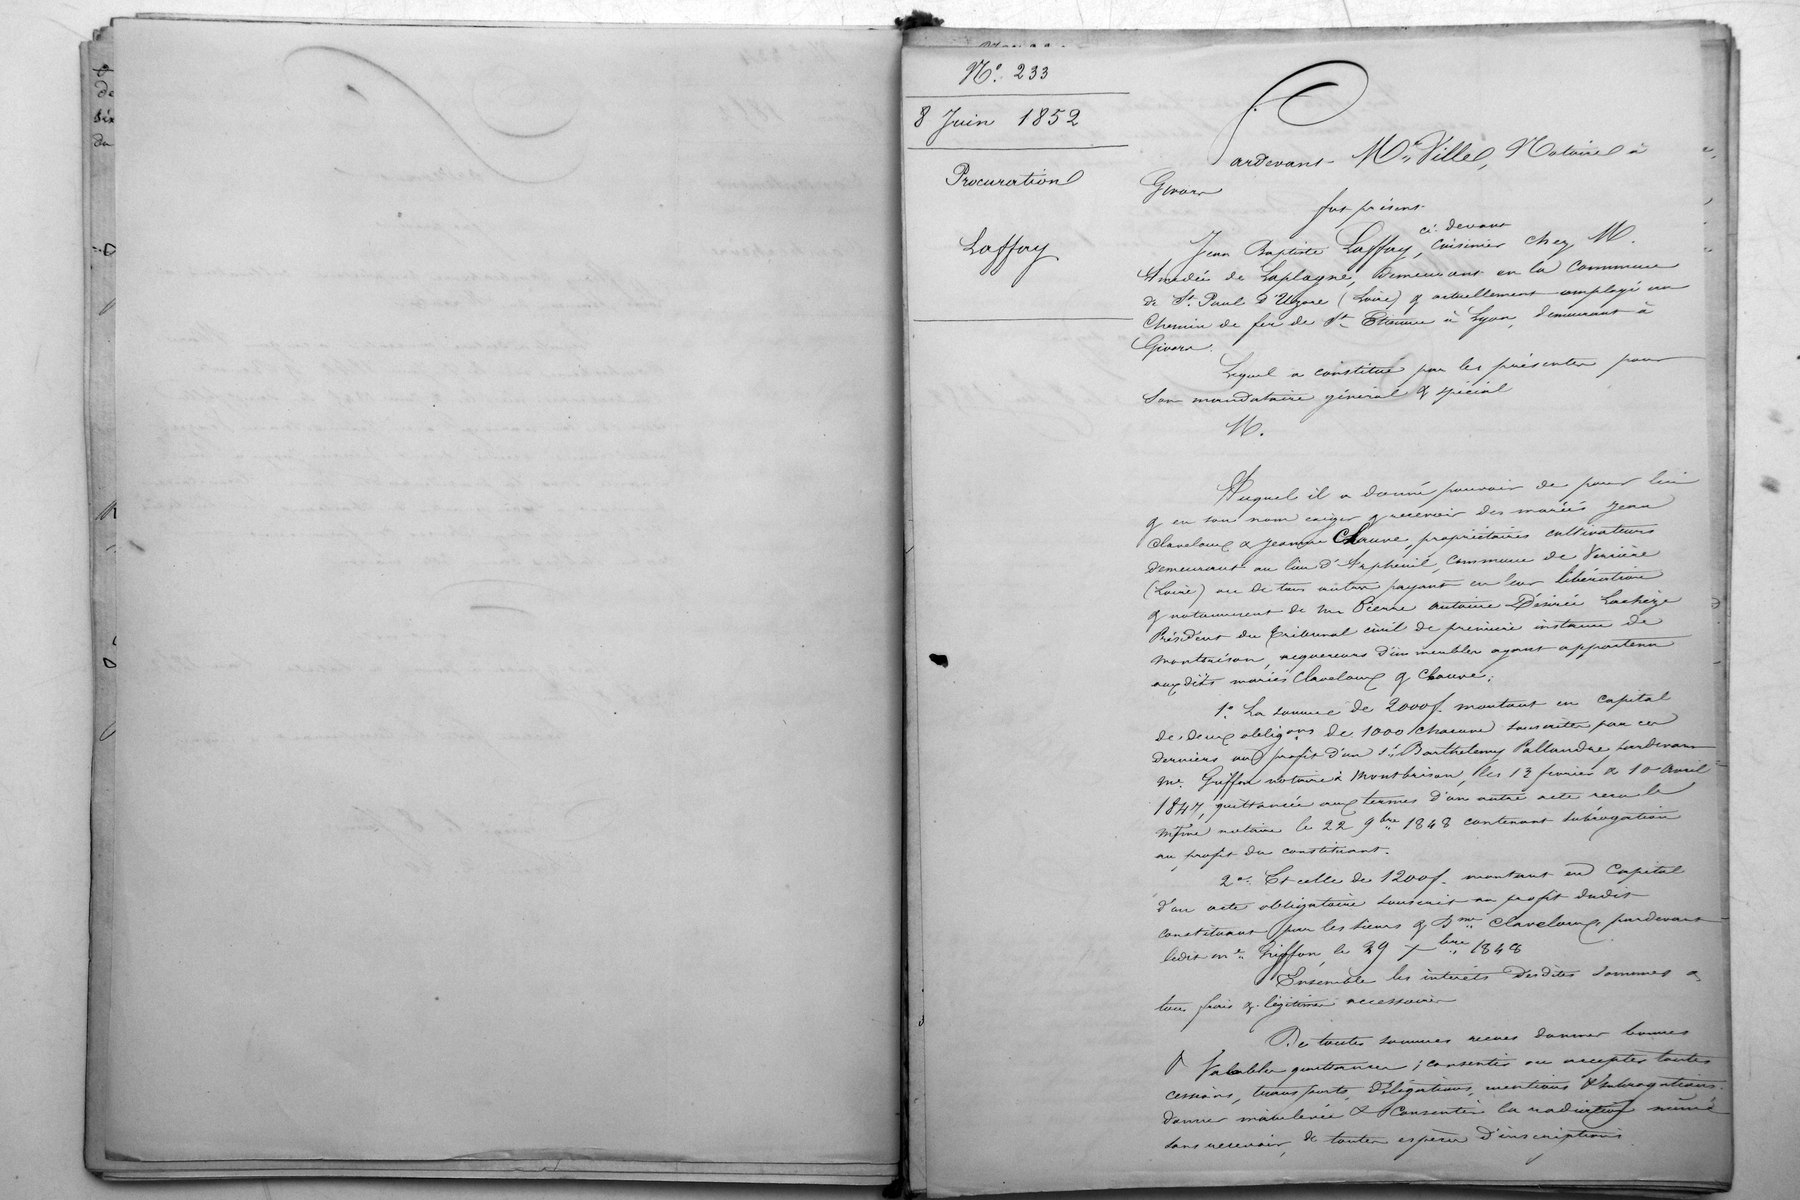 N° 233
8 Juin 1852
Procuration
Laffay
Pardevant Me Ville, Notaire à
Givors
fut présent
Jean Baptiste Laffay, ci-devant cuisinier chez M.
Amédée de Laplagne, demeurant en la commune
de St Paul d'Uzore (Loire) & actuellement employé au
Chemin de fer de St Etienne à Lyon, demeurant à
Givors.
Lequel a constitué par les présentes pour
son mandataire général & spécial
M.
Auquel il a donné pouvoir de pour lui
& en son nom exiger & recevoir des mariés Jean
Claveloux & Jeanne Chauve, propriétaires cultivateurs
demeurant au lieu d', commune de Verrière
(Loire) ou de tous autres payant en leur libération
& notamment de Mr Pierre Antoine Désirée Lachèze
Président du tribunal civil de première instance de
Montbrison, acquereurs d'immeubles ayant appartenu
auxdits mariés Claveloux & Chauve;
1° La somme de 2000f. montant en capital
de deux obligons de 1000 chacune souscrites par ces
derniers au profit d'un Sr Barthelemy Pallandre, pardevant
Me Griffon notaire à Montbrison, les 13 fevrier & 10 avril
1847, quittancée aux termes d'un autre acte recu le
même notaire le 22 9bre 1848 contenant subrogation
au profit du constituant.
2° Et celle de 1200f. montant en Capital
d'un acte obligatoire souscrit au profit dudit
constituant par les sieurs & dme Claveloux, pardevant
ledit me Griffon, le 29 7bre 1848
Ensemble les intérêts desdites sommes &
tous frais & légitimes accessoires
De toutes sommes recues donner bonnes
& Valables quittances; consentir ou accepter toutes
cessions, transports, Délégations, mentions & subrogations,
donner mainlevée & consentir la radiation même
sans recevoir, de toutes espèces d'inscriptions.